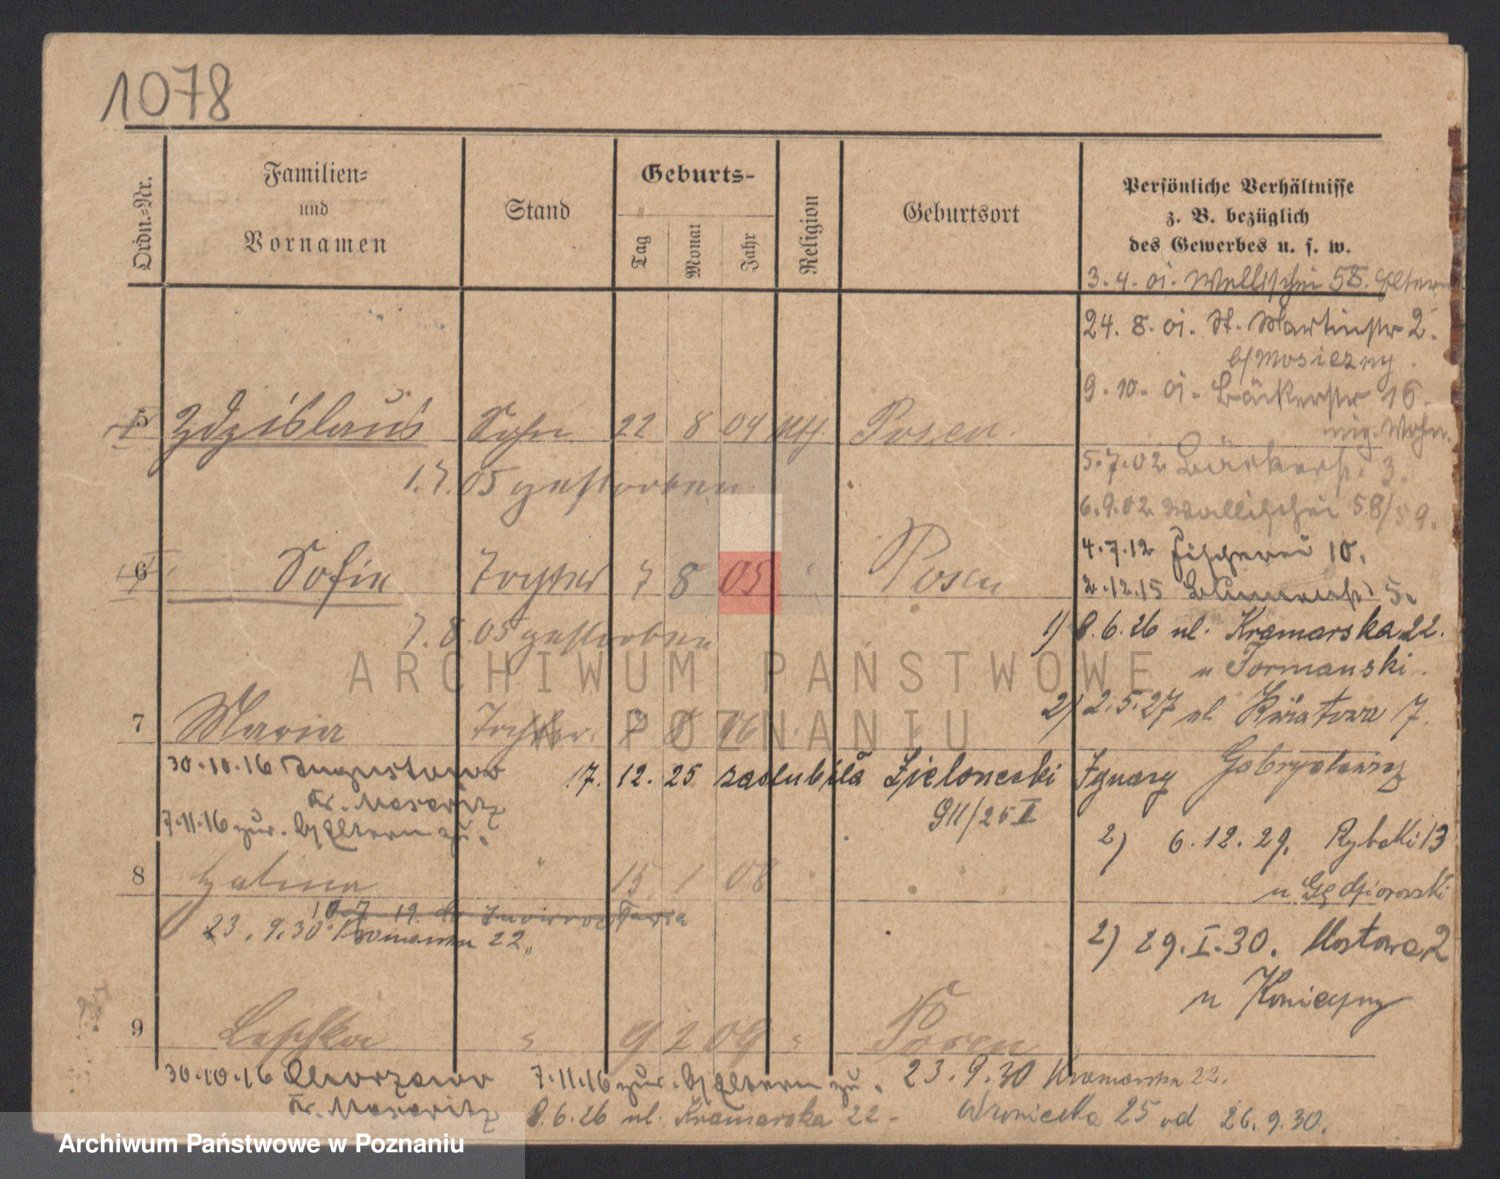 1078
Ordn.-Nr.
Familien-
und
Vornamen
Stand
Geburts-
Tag
Monat
Jahr
Religion
Geburtsort
Persönliche Verhältnisse
z. B. bezüglich
des Gewerbes u. s. w.
3.4.01. Wallischei 58. Eltern
24.8.01. St. Martinstr 2.
b/ Mosiezny.
9.10.01. Bäckerstr 16.
eig. Wohn.
5 Zdzislaus Sohn 22 8 04 Posen.
1.7.05 gestorben
5.7.02 Bäckerstr. 3.
6.9.02 Wallischei 58/59.
4.7.12 Fischerei 10.
6 Sofie Tochter 7 8 05 Posen
2.12.15 Blumenstr 5.
7.8.05 gestorben
1) 8.6.26 ul. Kramarska 22.
u Tormanski.
2) 2.5.27 ul Kwiatowa 17.
7 Maria Tochter.
30.10.16 Augustowo
Kr. Meseritz
7.11.16 zur. b/ Eltern zu.
17.12.25 zaslubiła Zieloneski Ignacy
911/25 I
2) 6.12.29. Rybaki 13
8 Halina " 15 1 08
10.7.19.
23.9.30 Kramarska 22"
2) 29.I.30. Mostowa 2
u
9 Leschka " 9 2 09 " Posen
30.10.16 Chorzewo
Kr. Meseritz
7.11.16 zur. b/ Eltern zu.
8.6.26 ul. Kramarska 22-
23.9.30 Kramarska 22.
Wroniecka 25 od 26.9.30.
ARCHIWUM PAŃSTWOWE
W POZNANIU
Archiwum Państwowe w Poznaniu